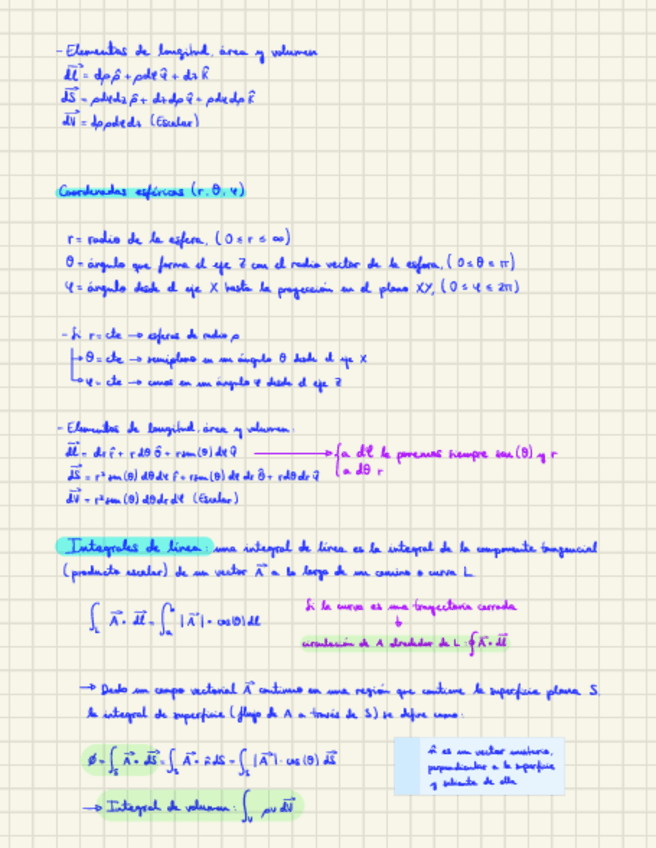 - Elementos de longitud, área y volumen
dl = dρ ρ̂ + ρdφ φ̂ + dz k̂
dS = ρdφdz ρ̂ + dz dρ φ̂ + ρdφ dρ k̂
dV = dρ ρdφ dz (Escalar)
Coordenadas esféricas (r, θ, φ)
r = radio de la esfera, (0 ≤ r ≤ ∞)
θ = ángulo que forma el eje Z con el radio vector de la esfera, (0 ≤ θ ≤ π)
φ = ángulo desde el eje X hasta la proyección en el plano XY, (0 ≤ φ ≤ 2π)
- Si r = cte → esferas de radio ρ
θ = cte → semiplano en un ángulo θ desde el eje X
φ = cte → conos en un ángulo φ desde el eje Z
- Elementos de longitud, área y volumen:
dl = dr r̂ + r dθ θ̂ + r sen(θ) dφ φ̂ → {a dφ le ponemos siempre sen(θ) y r
a dθ r
dS = r² sen(θ) dθ dφ r̂ + r sen(θ) dφ dr θ̂ + r dθ dr φ̂
dV = r² sen(θ) dθ dr dφ (Escalar)
Integrales de línea: una integral de línea es la integral de la componente tangencial
(producto escalar) de un vector A⃗ a lo largo de un camino o curva L
∫_L A⃗ · dl⃗ = ∫_a^b |A⃗| · cos(θ) dl
Si la curva es una trayectoria cerrada
↓
circulación de A alrededor de L: ∮ A⃗ · dl⃗
→ Dado un campo vectorial A⃗ continuo en una región que contiene la superficie plana S
la integral de superficie (flujo de A a través de S) se define como:
Ø = ∫_S A⃗ · dS⃗ = ∫_S A⃗ · n̂ dS = ∫_S |A⃗| · cos(θ) dS⃗
n̂ es un vector unitario,
perpendicular a la superficie
y saliente de ella
→ Integral de volumen: ∫_V ρv dV⃗